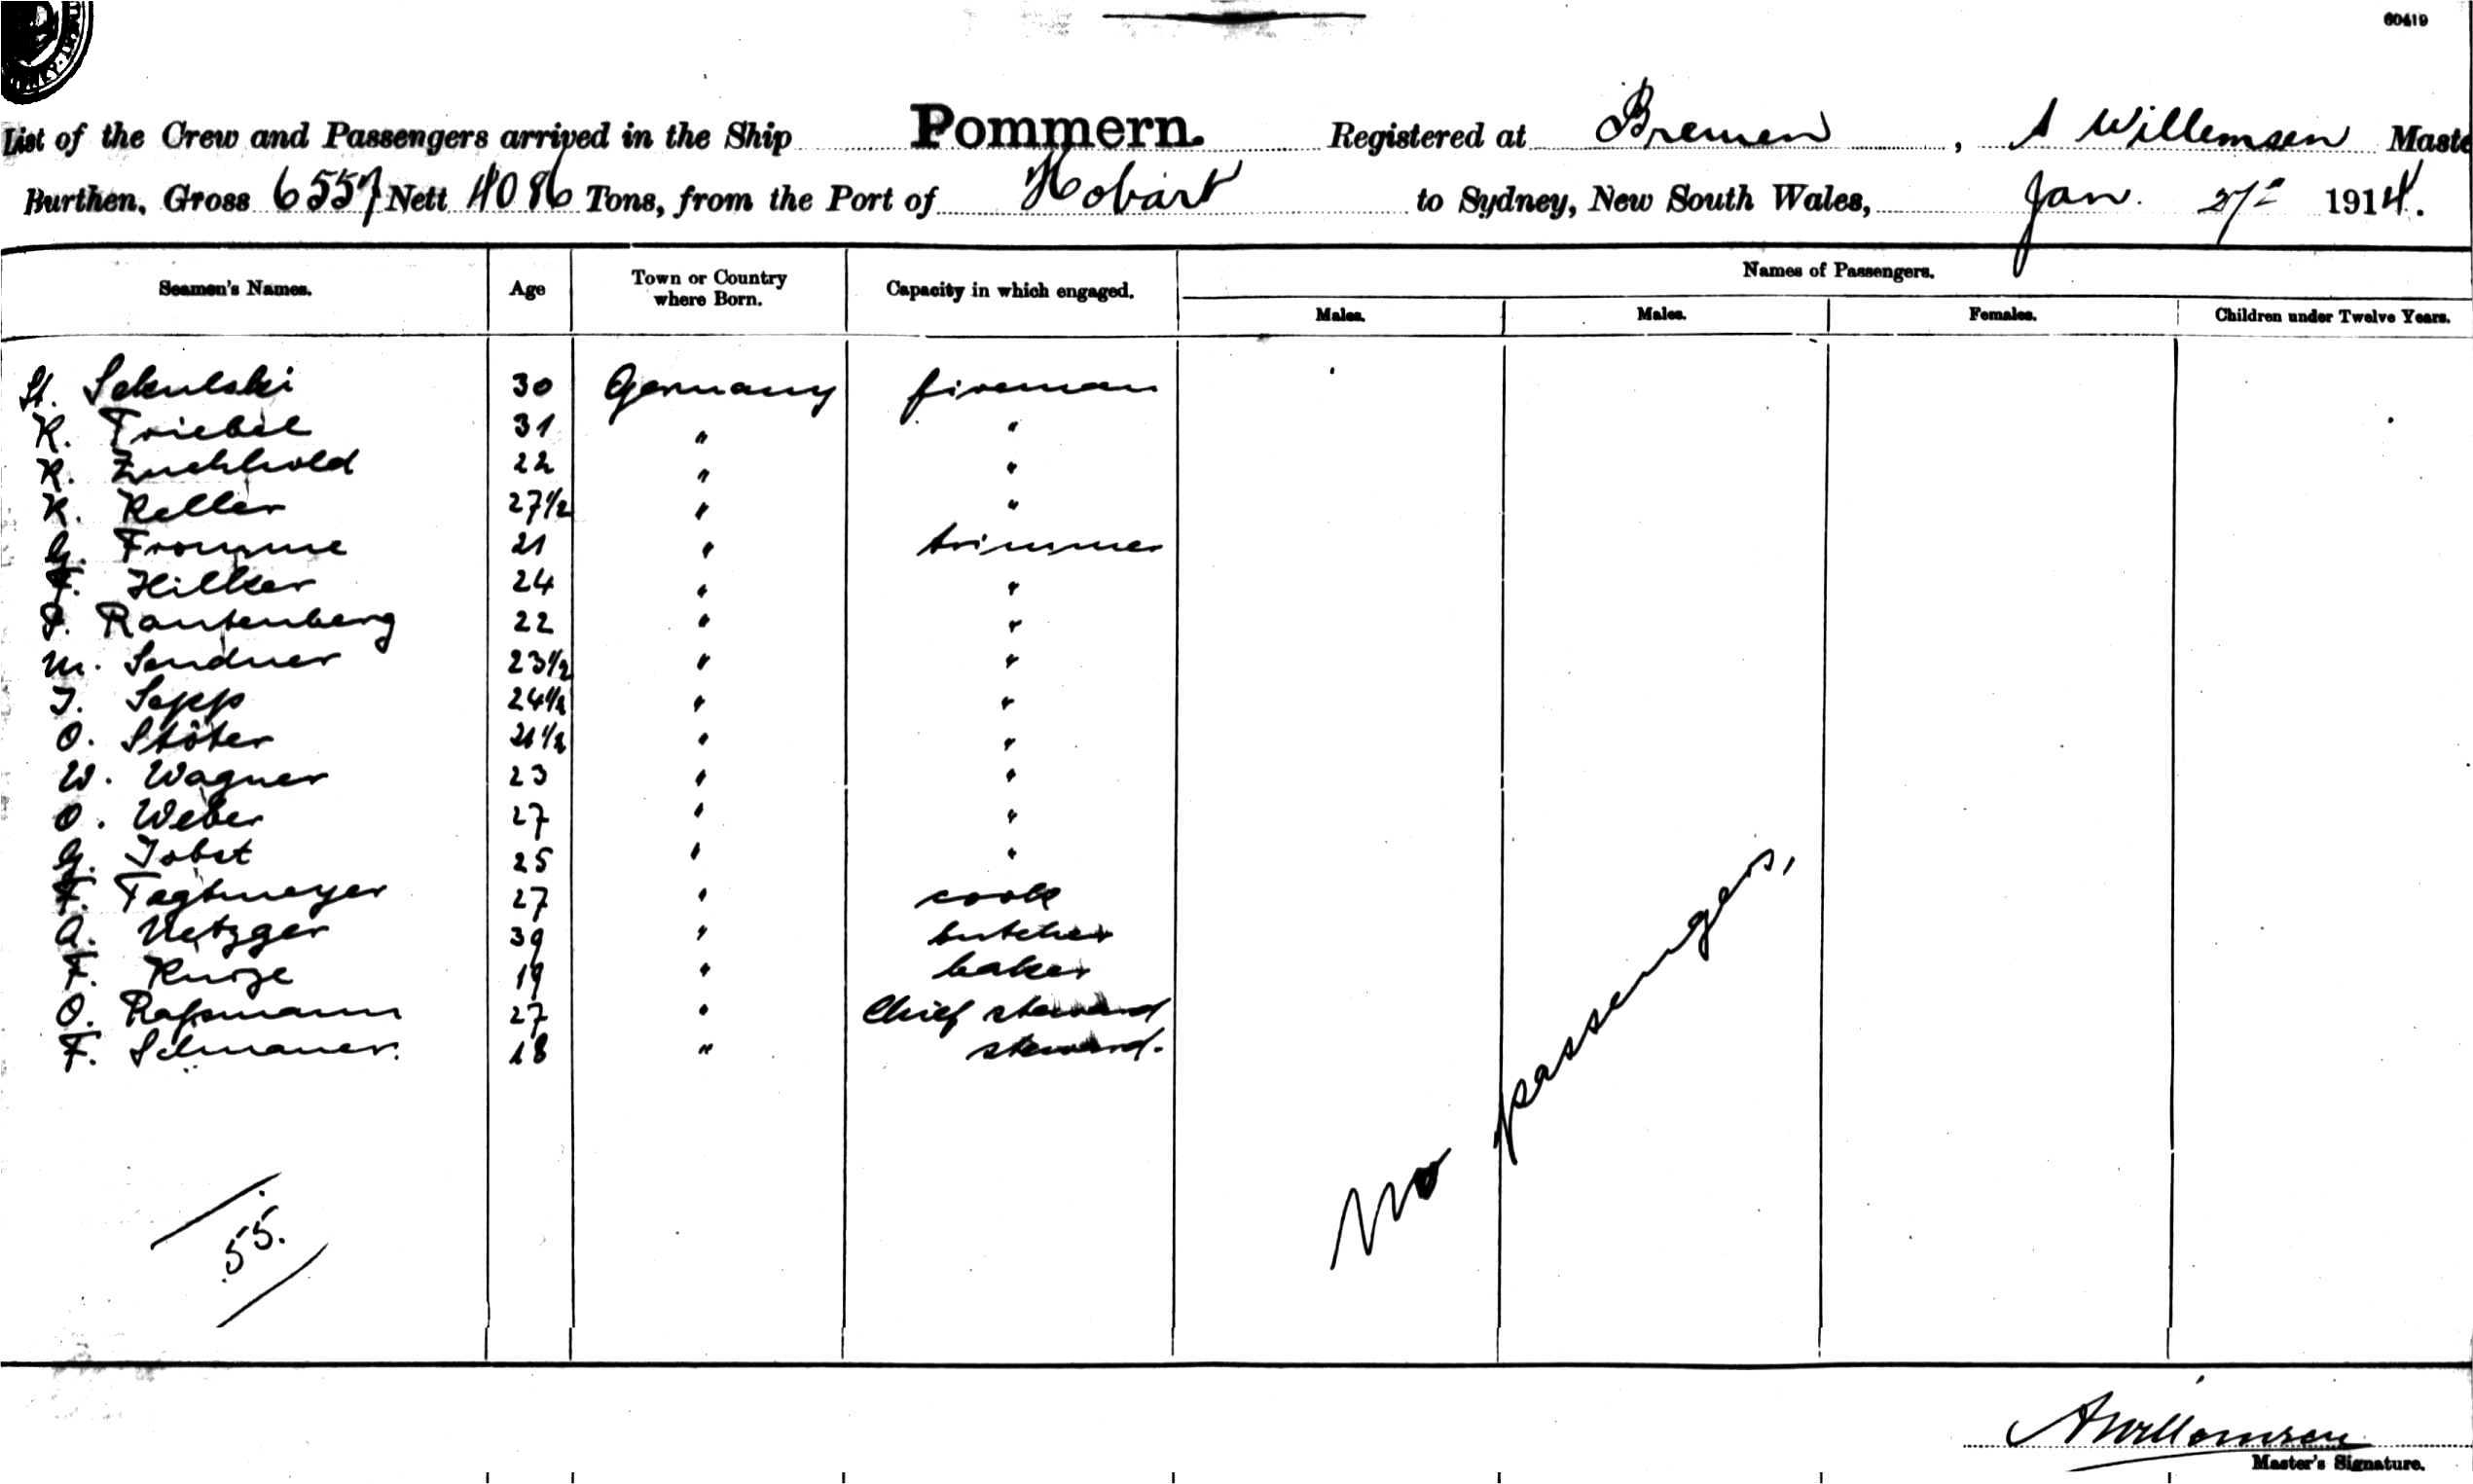 60419
List of the Crew and Passengers arrived in the Ship Pommern. Registered at Bremen, A Willemsen Maste
Burthen, Gross 6557 Nett 4086 Tons, from the Port of Hobart to Sydney, New South Wales, Jan. 27th 1914.
Names of Passengers.
Seamen's Names. Age Town or Country where Born. Capacity in which engaged. Males. Males. Females. Children under Twelve Years.
St. Sekulski 30 Germany fireman
R. Triebel 31 " "
R. Zuchhold 22 " "
K. Keller 27 1/2 " "
G. Fromme 21 " trimmer
F. Hilker 24 " "
P. Rautenberg 22 " "
M. Sendner 23 1/2 " "
J. Sepp 24 1/2 " "
O. Stöter 21 1/2 " "
W. Wagner 23 " "
O. Weber 27 " "
G. Jobst 25 " "
F. Tegtmeyer 27 " cook
A. Metzger 39 " butcher
F. Kunze 19 " baker
O. Raßmann 27 " Chief steward
F. 18 " steward.
No passengers.
55.
A Willemsen
Master's Signature.